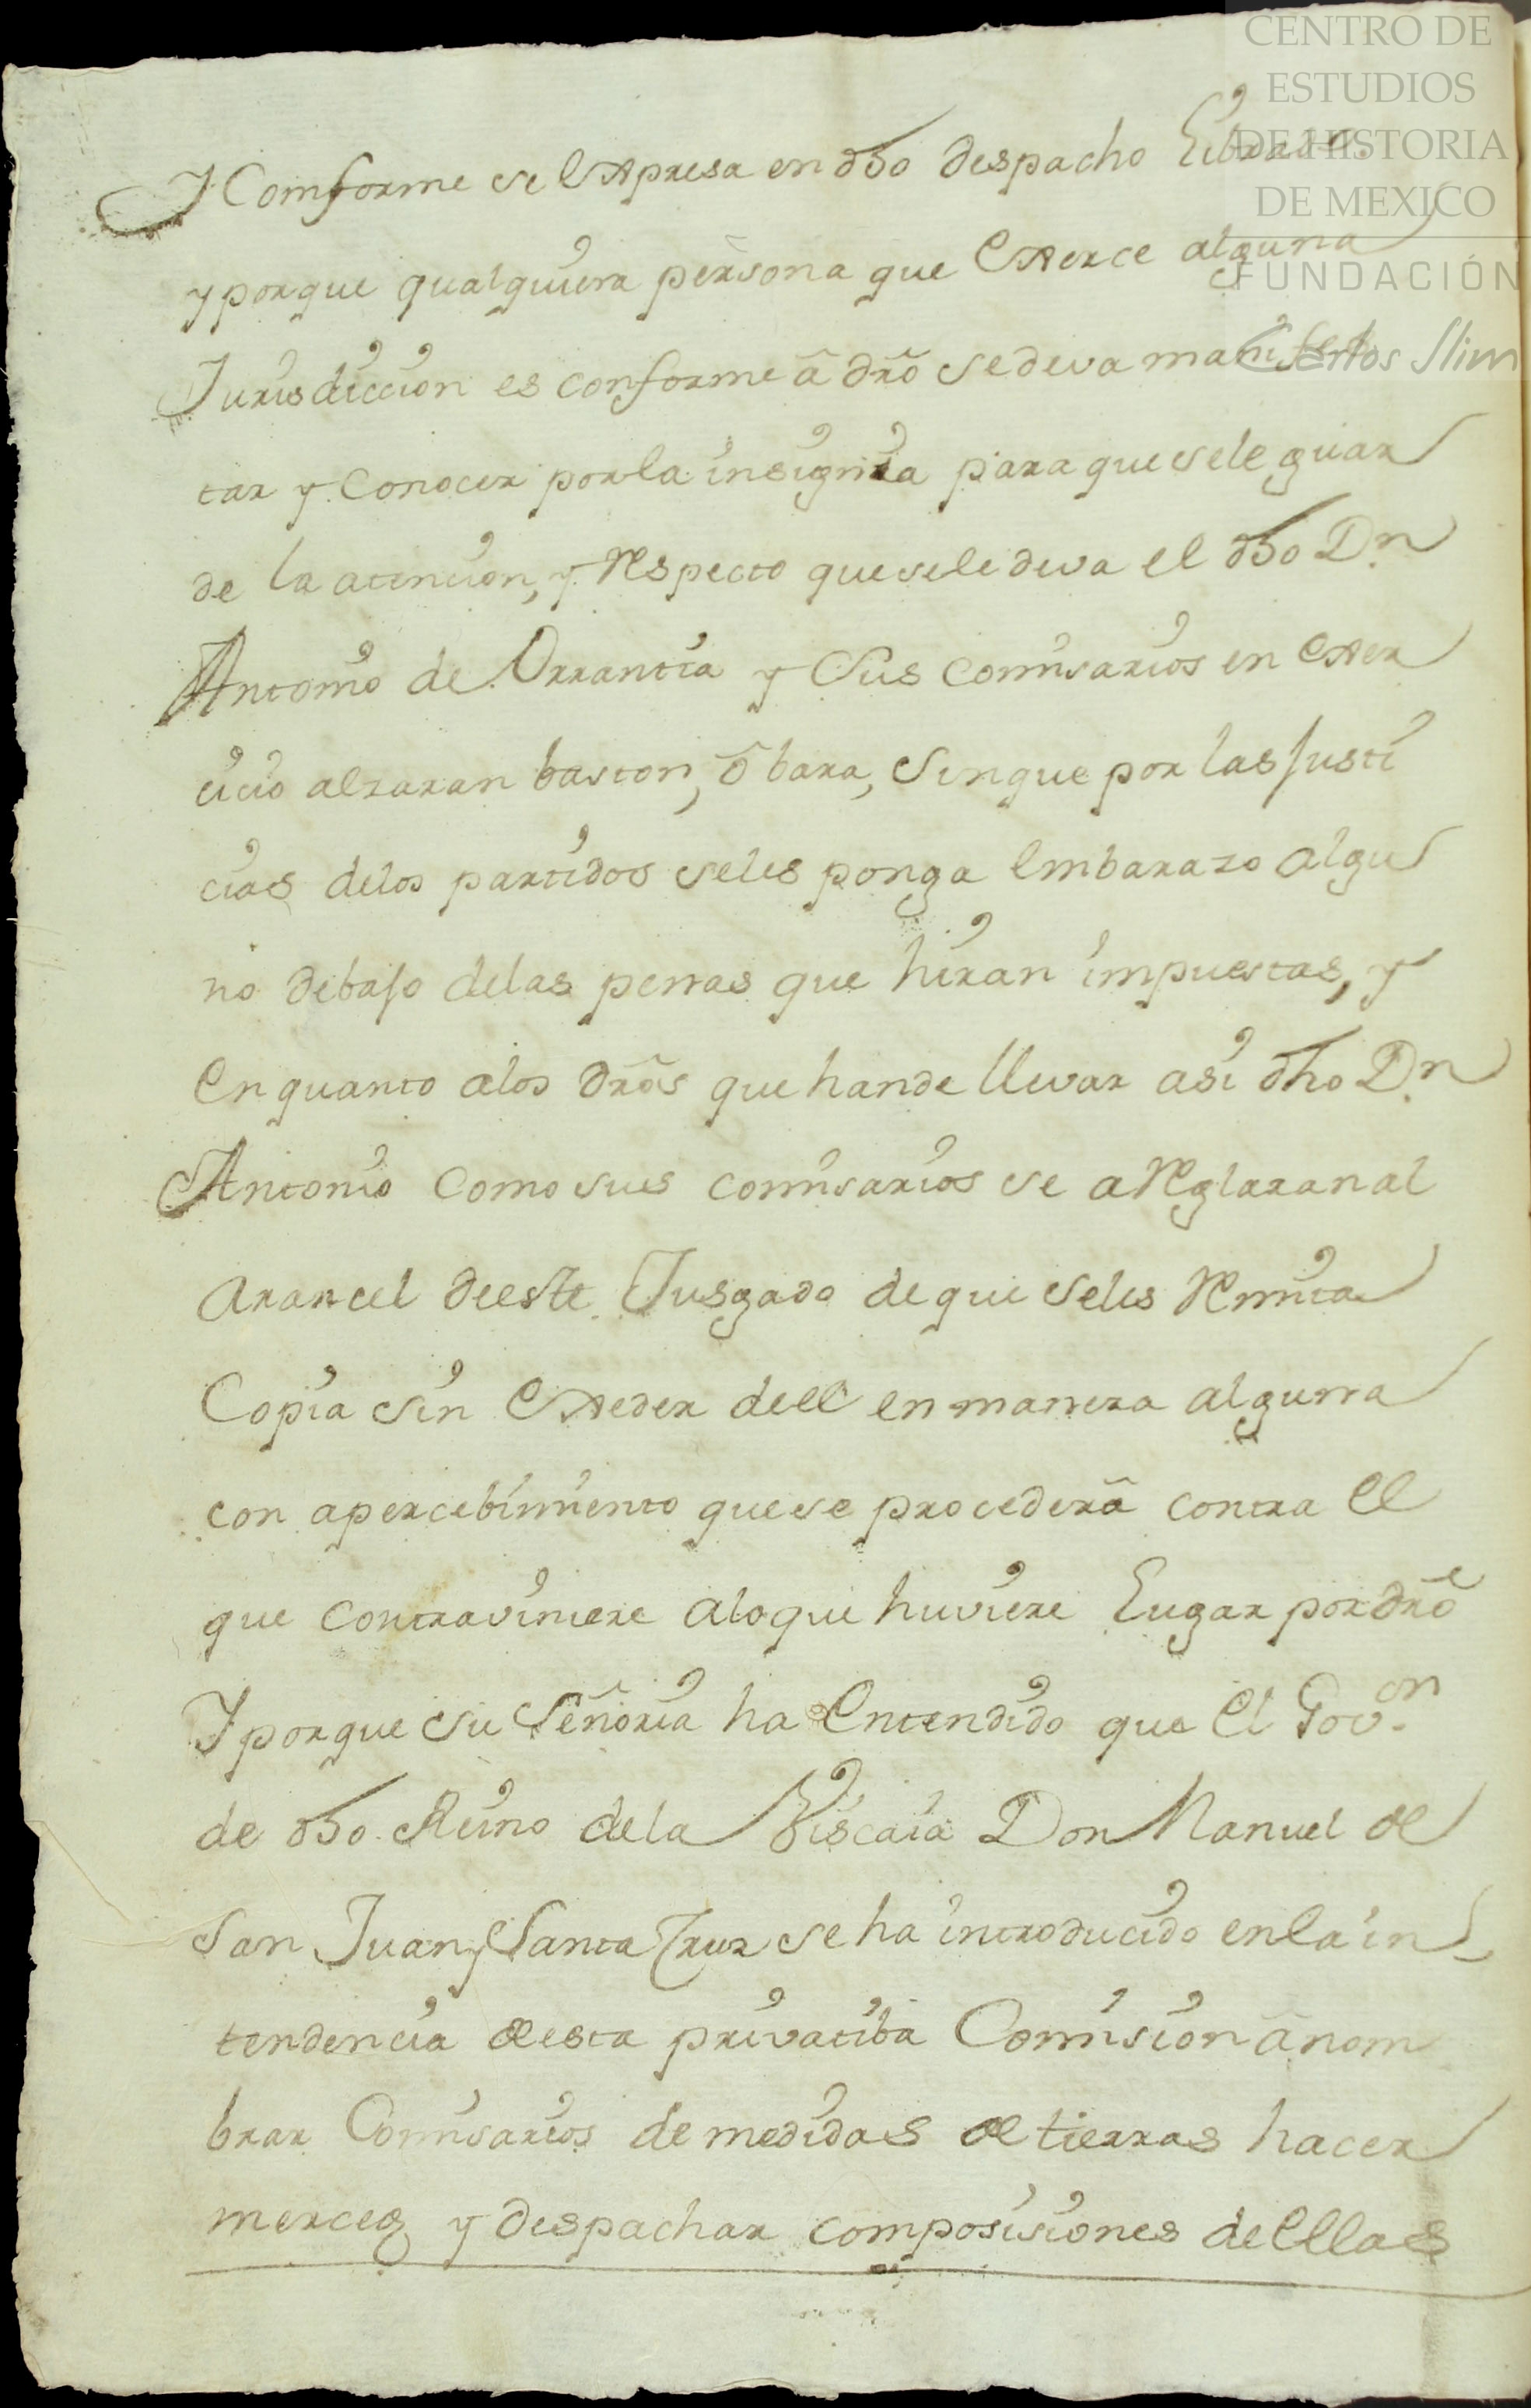 CENTRO DE
ESTUDIOS
DE HISTORIA
DE MEXICO
FUNDACIÓN
Carlos Slim
Y Comforme se Expresa en dho despacho Librado
y porque qualquiera persona que Exerce alguna
Jurisdiccion es conforme â dr̃o se deva manifes
tar y Conocer por la insignia para que se le guar
de la atencion, y Respecto que se le deva el dho Dn.
Antonio de Orrantia y Sus Comisarios en Exer
cicio alzaran baston, ô bara, Sin que por las Justi
cias delos partidos seles ponga Embarazo algu
no debajo delas penas que hiran impuestas, y
En quanto alos dr̃os que hande llevar asi dho Dn.
Antonio Como sus comisarios se aReglaran al
Arancel deeste Jusgado de que seles Remita
Copia sin Exeder dell en manera alguna
con apercebimiento que se procederâ contra El
que contraviniere alo que huviere Lugar por dr̃o
Y porque su Señoria ha Entendido que El Gov.or
de dho Reino dela Viscaia Don Manuel de
San Juan y Santa Cruz se ha introducido en la in
tendencia de esta privatiba Comision â nom
brar Comisarios de medidas de tierras hacer
merceds y despachar composisiones de Ellas